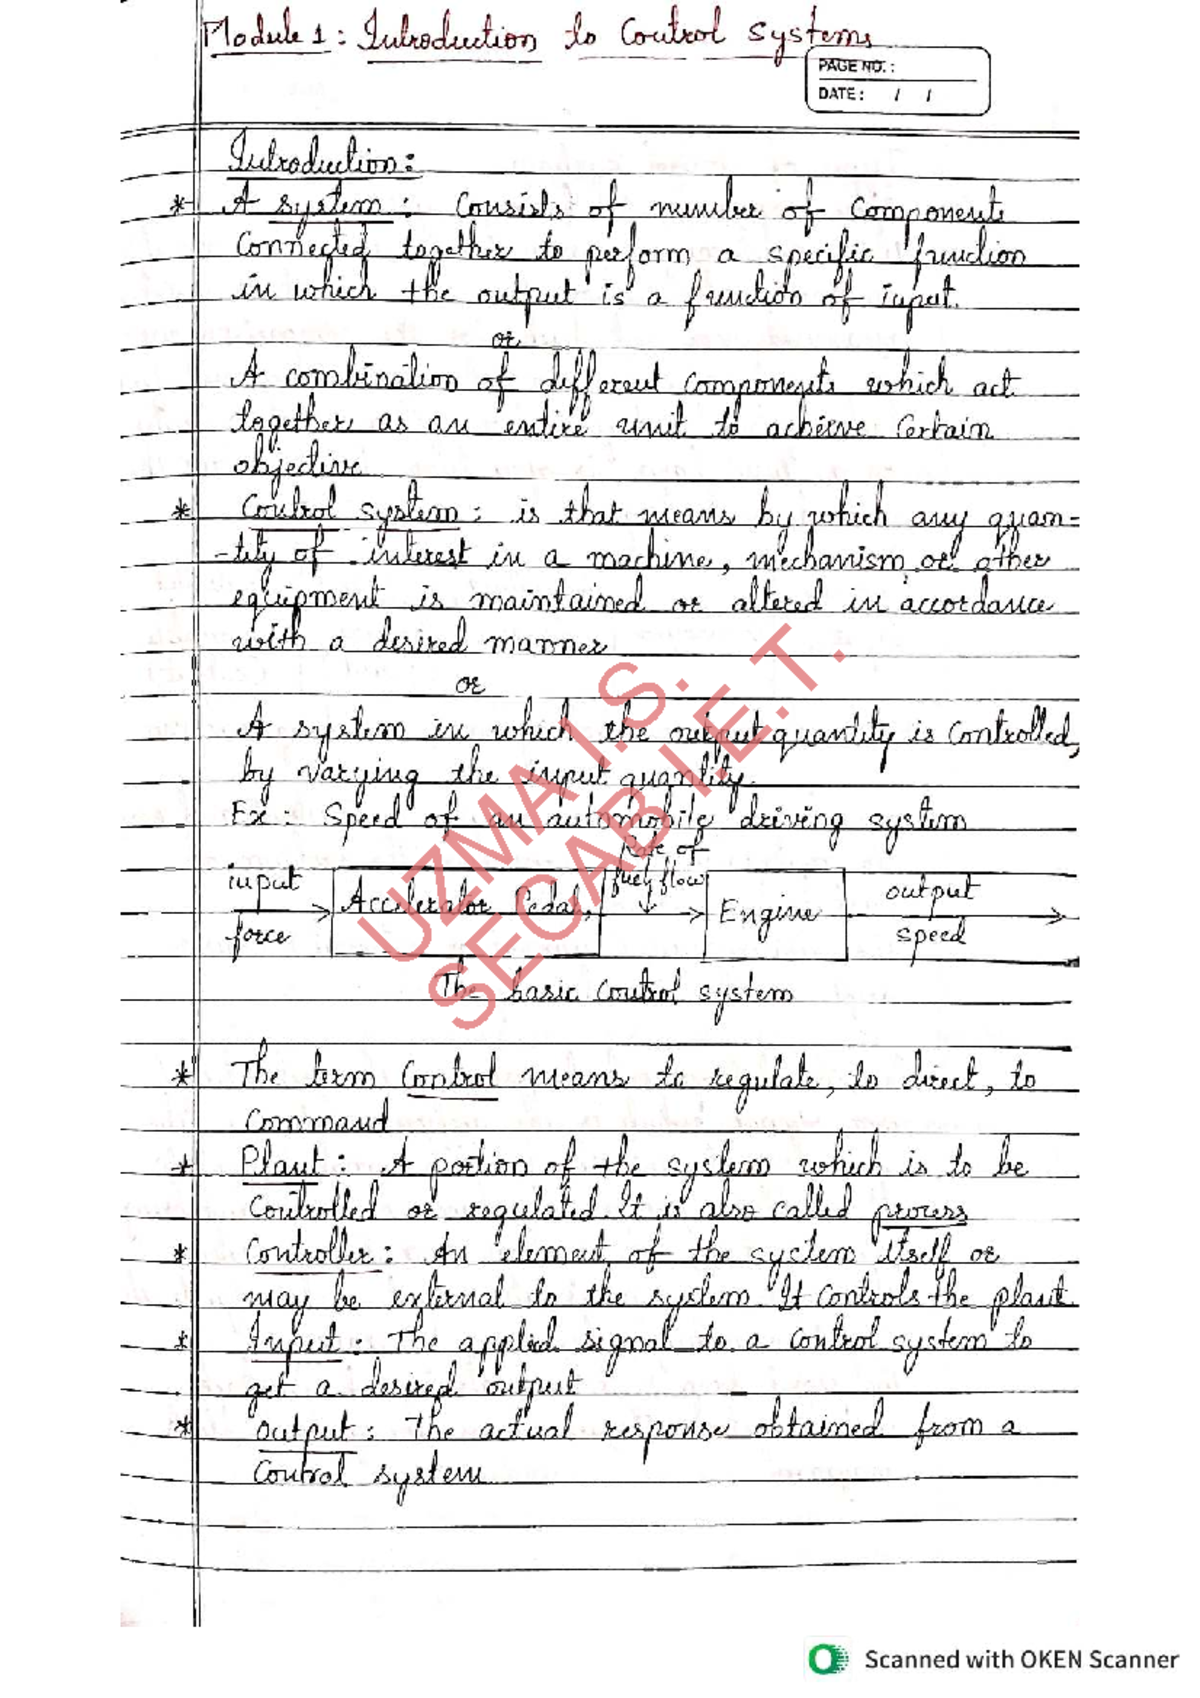 Module 1 : Introduction to Control Systems
PAGE NO. :
DATE : / /
Introduction:
* A system : Consists of number of Components
Connected together to perform a specific function
in which the output is a function of input.
or
A combination of different components which act
together as an entire unit to acheive Certain
objective
* Control system : is that means by which any quan-
-tity of interest in a machine, mechanism or other
equipment is maintained or altered in accordance
with a desired manner
or
A system in which the output quantity is Controlled,
by varying the input quantity.
Ex : Speed of an automobile driving system
Rate of
fuel flow
input
force
Accelerator Pedal,
Engine
output
speed
The basic Control system
* The term Control means to regulate, to direct, to
Command
* Plant : A portion of the system which is to be
Controlled or regulated It is also called process
* Controller : An element of the system itself or
may be external to the system. It Controls the plant
* Input : The applied signal to a Control system to
get a desired output
* Output : The actual response obtained from a
Control system
UZMA I.S.
SECAB I.E.T.
Scanned with OKEN Scanner